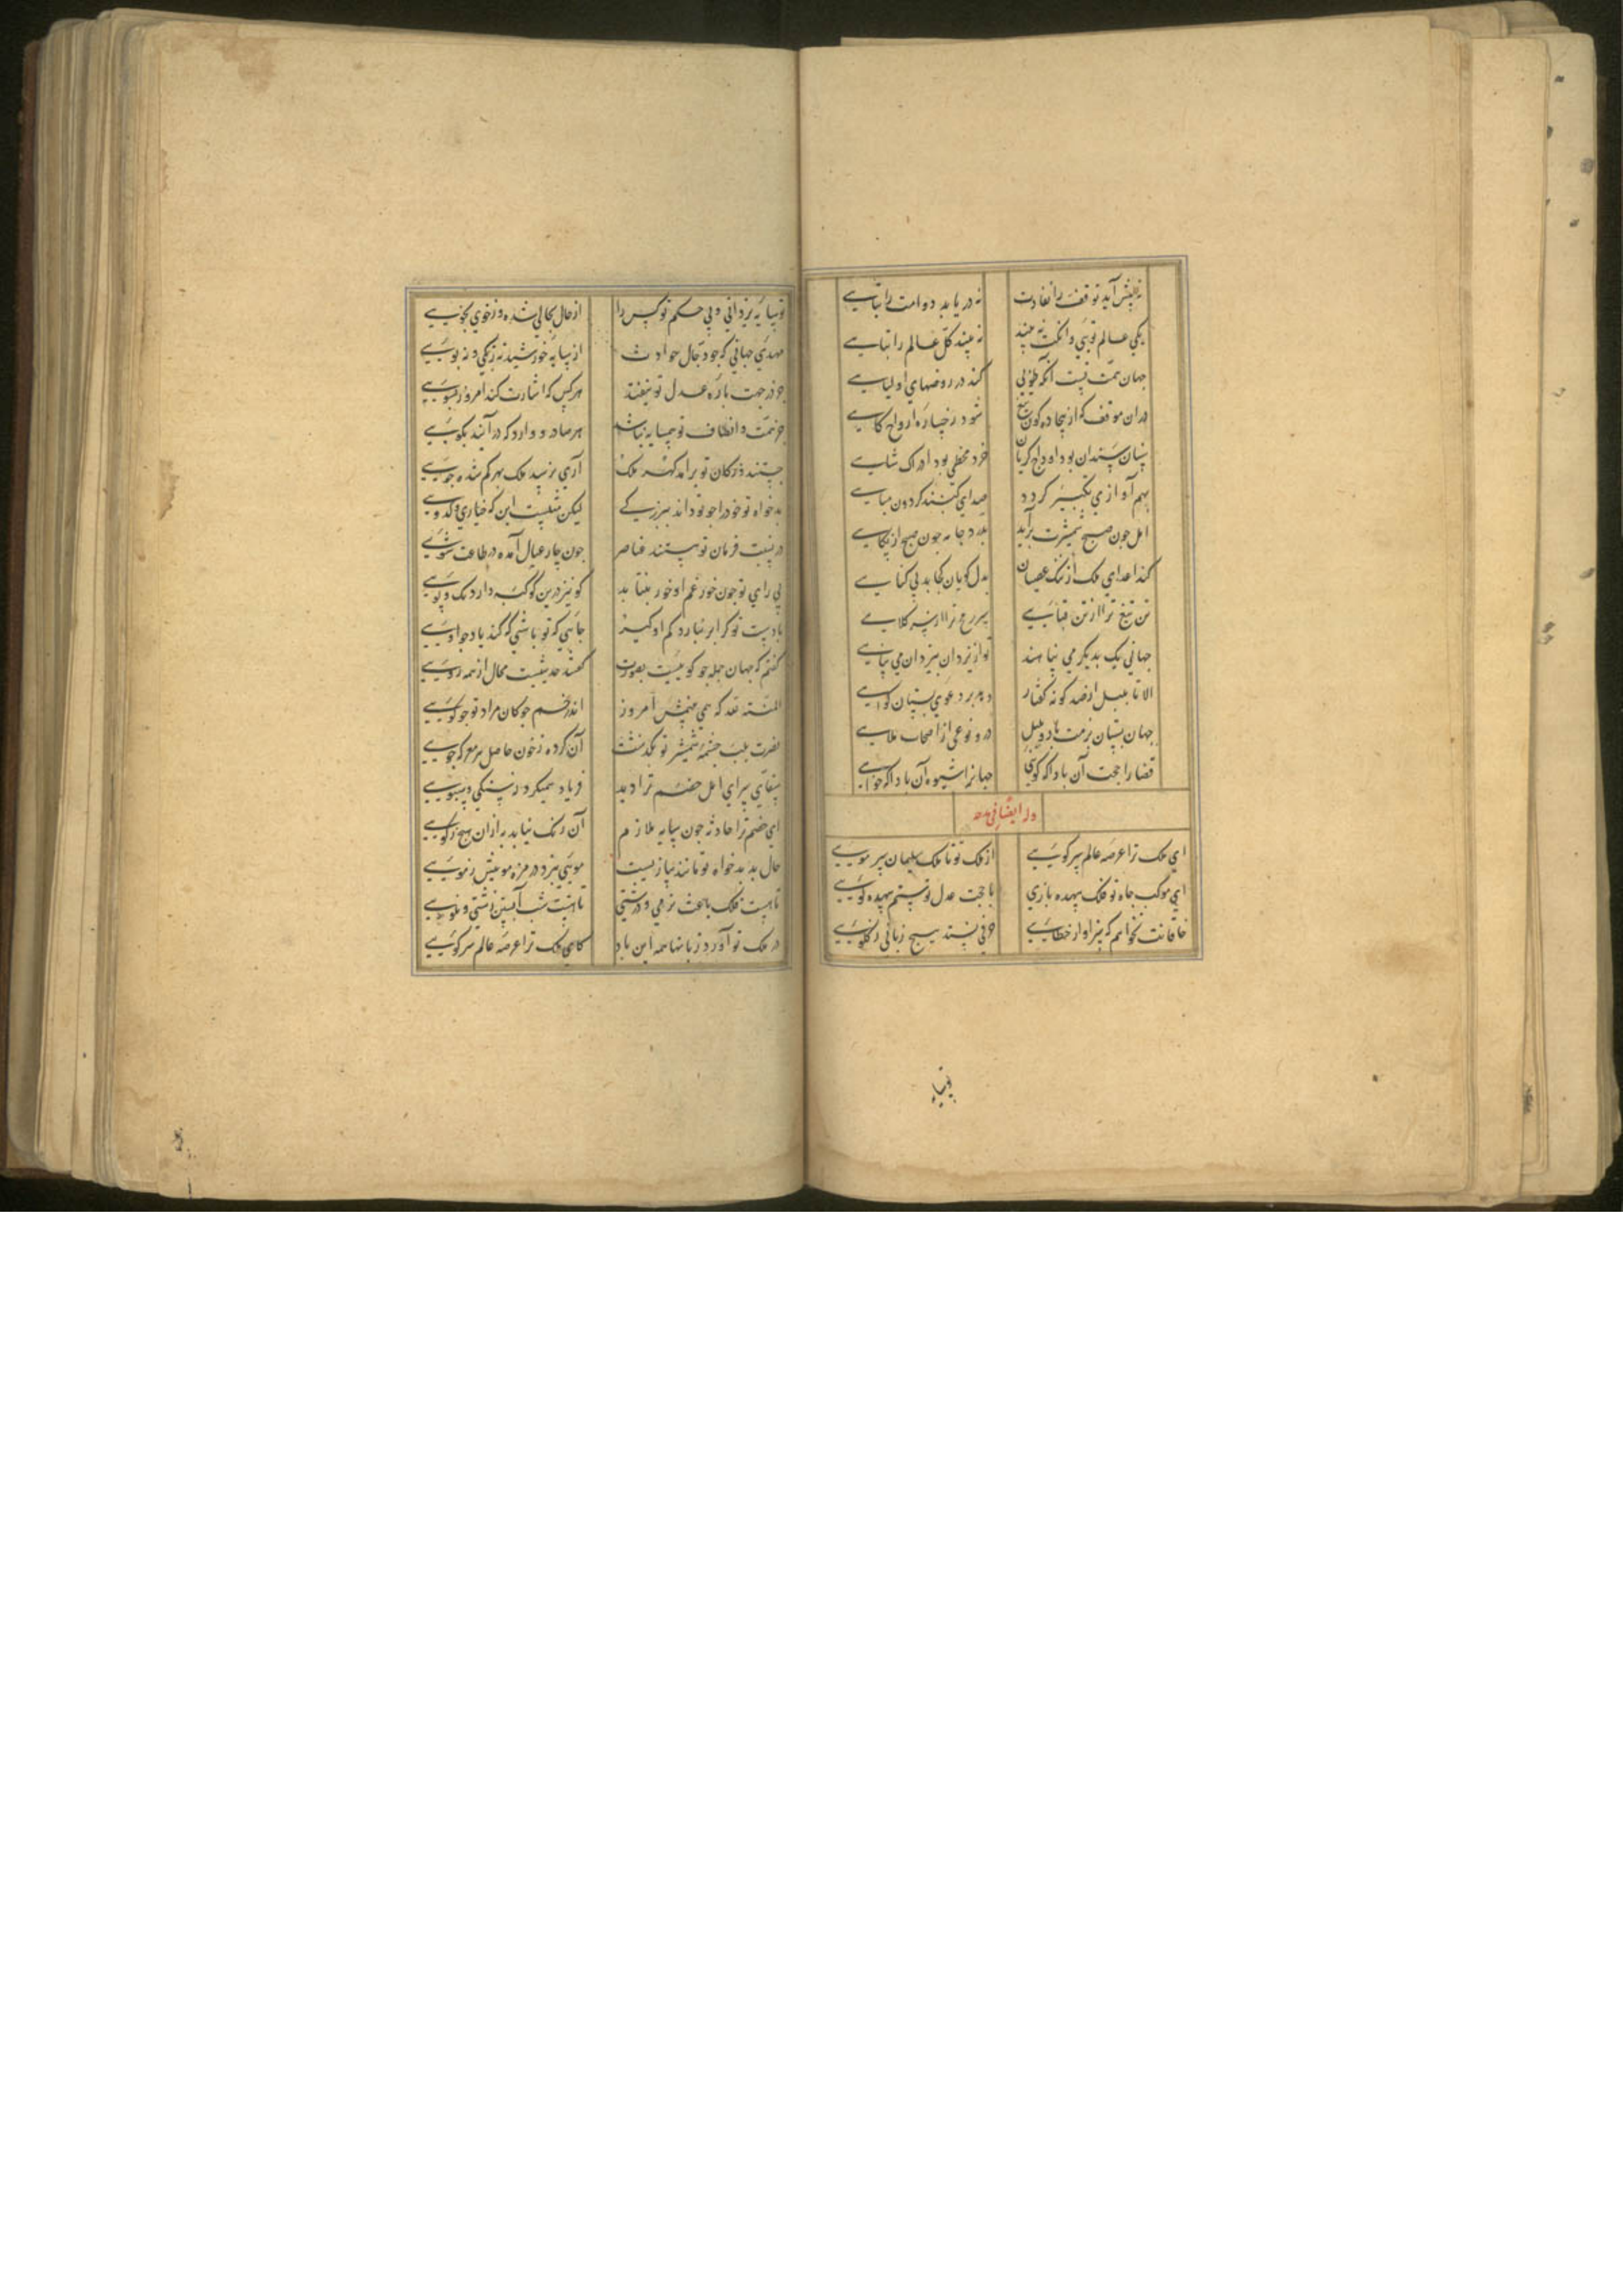 نه پیش آید توقف را نفادت نه دریابد دوامت را تباهی
یکی عالم توئی وانکت نه بیند نه بیند کل عالم را تباهی
جهان همت نیست آنکه طوبی کند در روضهای او لیاهی
دران موقف که از بیجاده کون تیغ شود رخساره ارواح کاهی
سنان سندان بود اوداج کریان خرد مخطی بود ادراک شاهی
بهم آوازی تکبیر کردد صدای کنبند کردون مباهی
امل چون صبح شمشیرت برآید بدرد جامه چون صبح از پکاهی
کند اعدای ملک از ننک عصیان بدل کویان که باد بی کناهی
تن تیغ ترا از تن قبایی سر رمح ترا از سر کلاهی
جهانی یک بدیکر می پناهند تو از یزدان بیزدان می پناهی
الا تا بلبل از صد کونه کفتار دهد بر دعوی بستان کواهی
جهان بستان بزمت باد و بلبل درو نوعی از اصحاب ملاهی
قضا را حجت آن بادا که کویی جهانرا شیوه آن بادا که خواهی
وله ایضا فی مدحه
ای ملک ترا عرصه عالم سر کویی از ملک تو تا ملک سلیمان سر مویی
ای موکب جاه تو فلک بیهده تازی با حجت عدل تو ستم بیهده کویی
خاقانت نخوانم که سزاوار خطابی حرفی نسند هیچ زبانی ز کلویی
توسا
تو سایه یزدانی و بی حکم تو کس را از حال بحالی شد و ز خوی بخویی
مهدی جهانی که چو دجال حوادث از سایه خورشید نه رنکی و نه بویی
جز در جهت باره عدل تو نیفتد هر کس که اشارت کند امروز بسویی
جز نعمت و الطاف تو همسایه نباشد هر صادر و وارد که درآیند بکویی
جستند در کان تو برآمد کهر ملک آری نرسید ملک بهر کم شده جویی
بدخواه تو خود را چو تو داند ببزرکی لیکن مثلیست این که خیاری و کدویی
در نسبت فرمان تو هستند عناصر چون چار عیال آمده در طاعت شویی
بی رای تو چون خور غم او خور بنتابد کو نیز درین کوکبه دارد تک و پویی
با دست تو کر ابر نبارد کم او کیر جایی که تو باشی که کند یاد چو اویی
کفتم که جهان جمله چو کوییست بصورت کفتند حدیثیست محال از همه رویی
المنة لله که همی بینمش امروز اندر خم چوکان مراد تو چو کویی
نصرت بلب چشمه شمشیر تو بکذشت آن کرده ز خون حاصل هر معرکه جویی
سقایی سرای امل خصم ترا دید فریاد همیکرد ز سنکی و سبویی
ای خصم ترا حادثه چون سایه ملازم آن رنک نیاید به ازان هیچ رکویی
حال بد بدخواه تو مانند پیازیست مویی نبرد در مزه مویش ز مویی
تا هست فلک باعث نرمی و درشتی تا هست شب آبستن زشتی و نکویی
در ملک تو آورد زبانها همه این باد کای ملک ترا عرصه عالم سر کویی